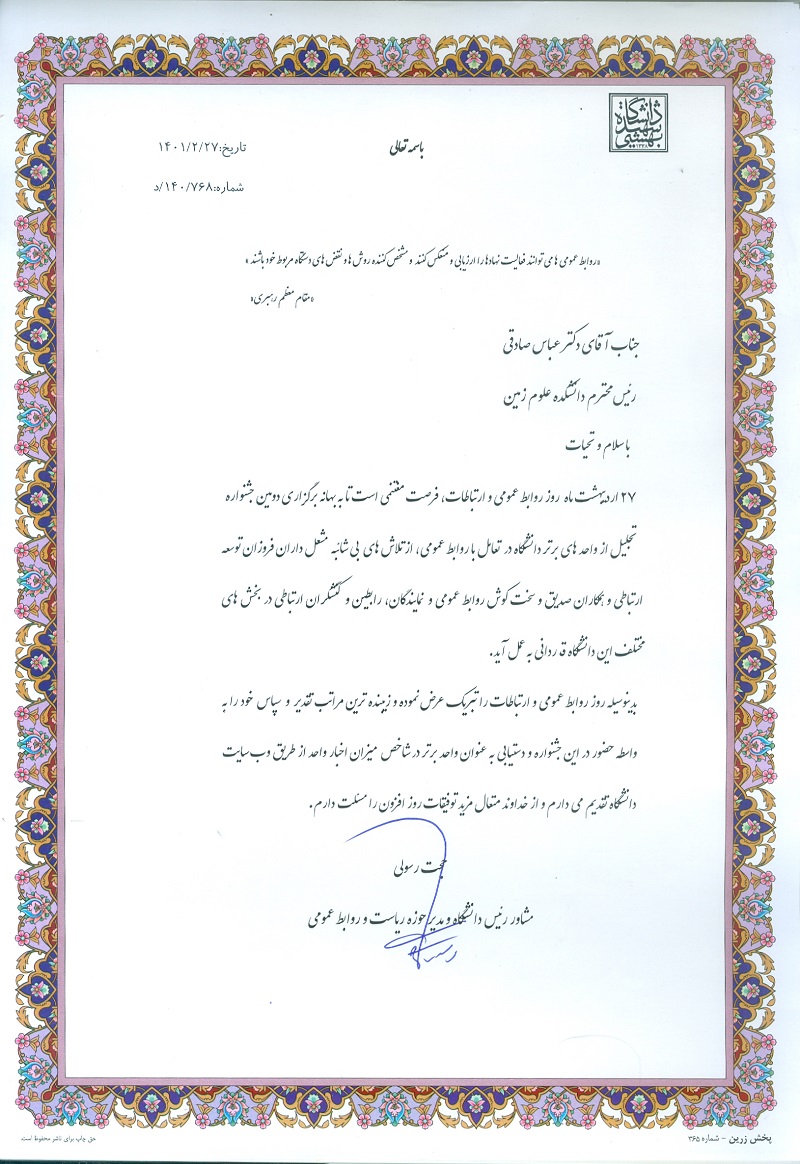 دانشگاه شهید بهشتی
۱۳۳۸
باسمه تعالی
تاریخ:۱۴۰۱/۲/۲۷
شماره:۱۴۰/۷۶۸/د
«روابط عمومی ها می توانند فعالیت نهادها را ارزیابی و منعکس کنند و مشخص کننده روش ها و نقص های دستگاه مربوط خود باشند»
«مقام معظم رهبری»
جناب آقای دکتر عباس صادقی
رئیس محترم دانشکده علوم زمین
با سلام و تحیات
۲۷ اردیبهشت ماه روز روابط عمومی و ارتباطات، فرصت مغتنمی است تا به بهانه برگزاری دومین جشنواره
تجلیل از واحد های برتر دانشگاه در تعامل با روابط عمومی، از تلاش های بی شائبه مشعل داران فروزان توسعه
ارتباطی و همکاران صدیق و سخت کوش روابط عمومی و نمایندگان، رابطین و کنشگران ارتباطی در بخش های
مختلف این دانشگاه قدردانی به عمل آید.
بدینوسیله روز روابط عمومی و ارتباطات را تبریک عرض نموده و زیبنده ترین مراتب تقدیر و سپاس خود را به
واسطه حضور در این جشنواره و دستیابی به عنوان واحد برتر در شاخص میزان اخبار واحد از طریق وب سایت
دانشگاه تقدیم می دارم و از خداوند متعال مزید توفیقات روز افزون را مسئلت دارم.
حجت رسولی
مشاور رئیس دانشگاه و مدیر حوزه ریاست و روابط عمومی
پخش زرین - شماره ۳۶۵
حق چاپ برای ناشر محفوظ است.